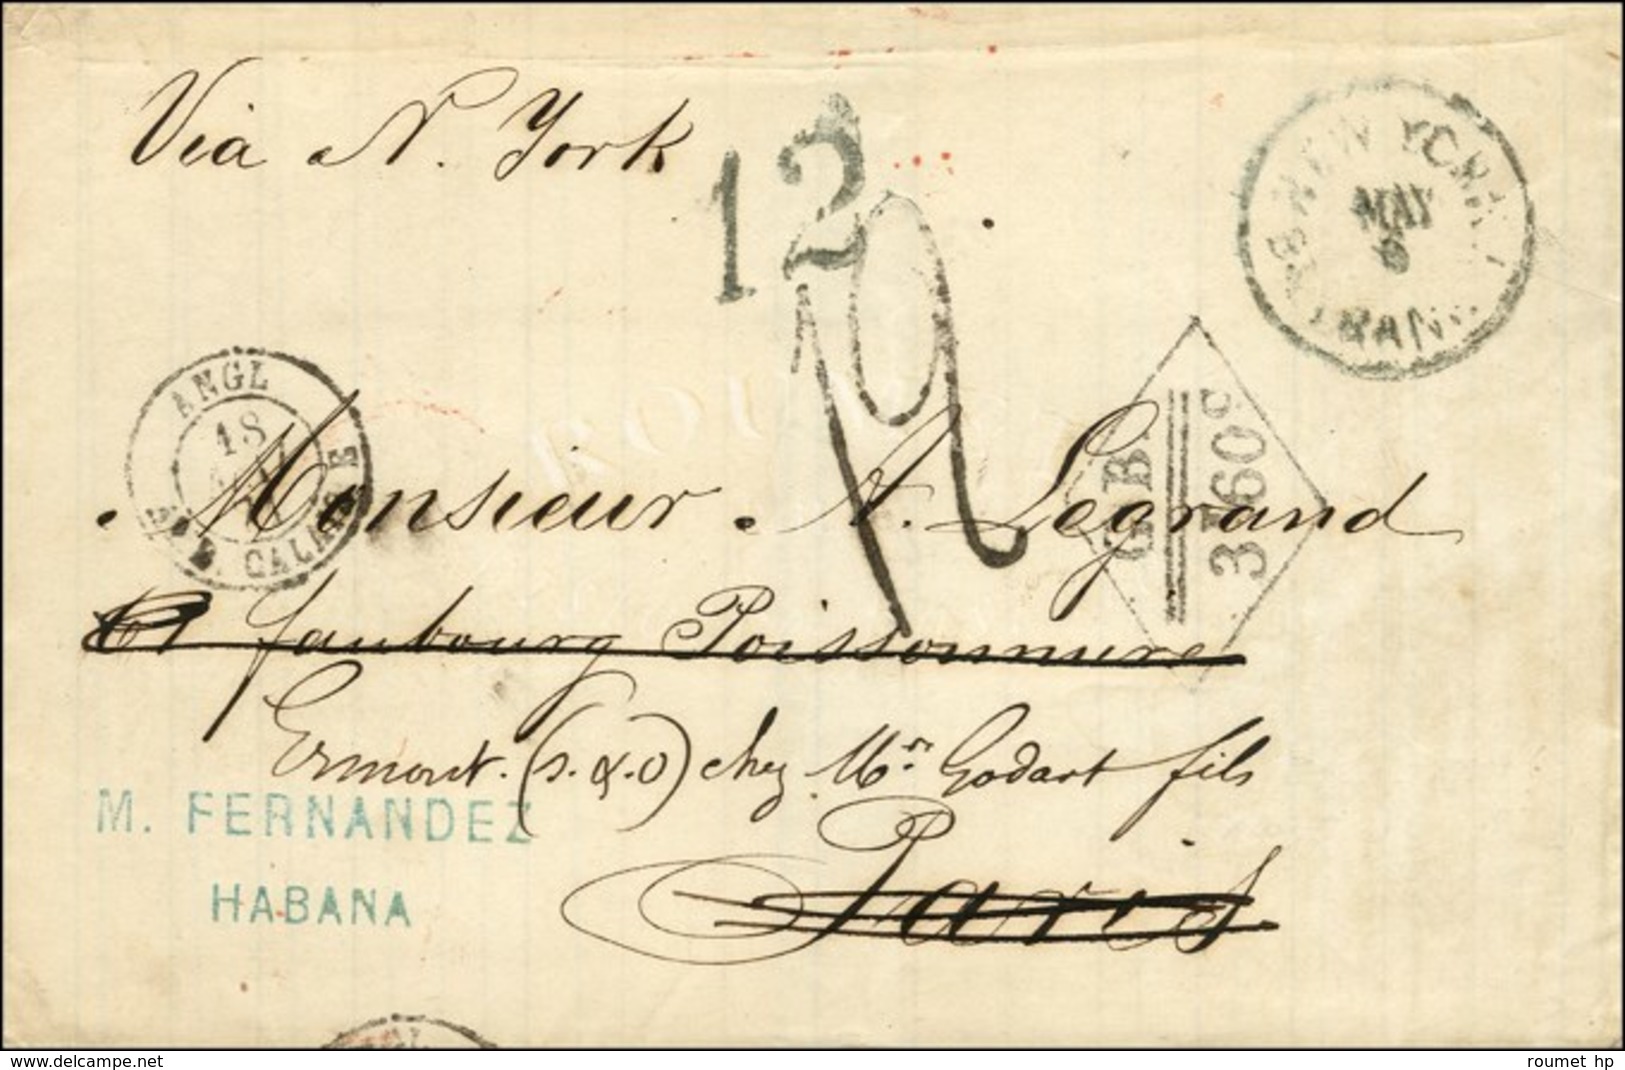 Via N. York
12
NEW YORK
MAY
6
TRAN
ANGL
18
CALAIS
GB
3F60c
Monsieur A. Legrand
faubourg Poissonniere
Ermont. (S. & O) chez Mr. Godart fils
M. FERNANDEZ
HABANA
Paris
delcampe.net
roumet hp